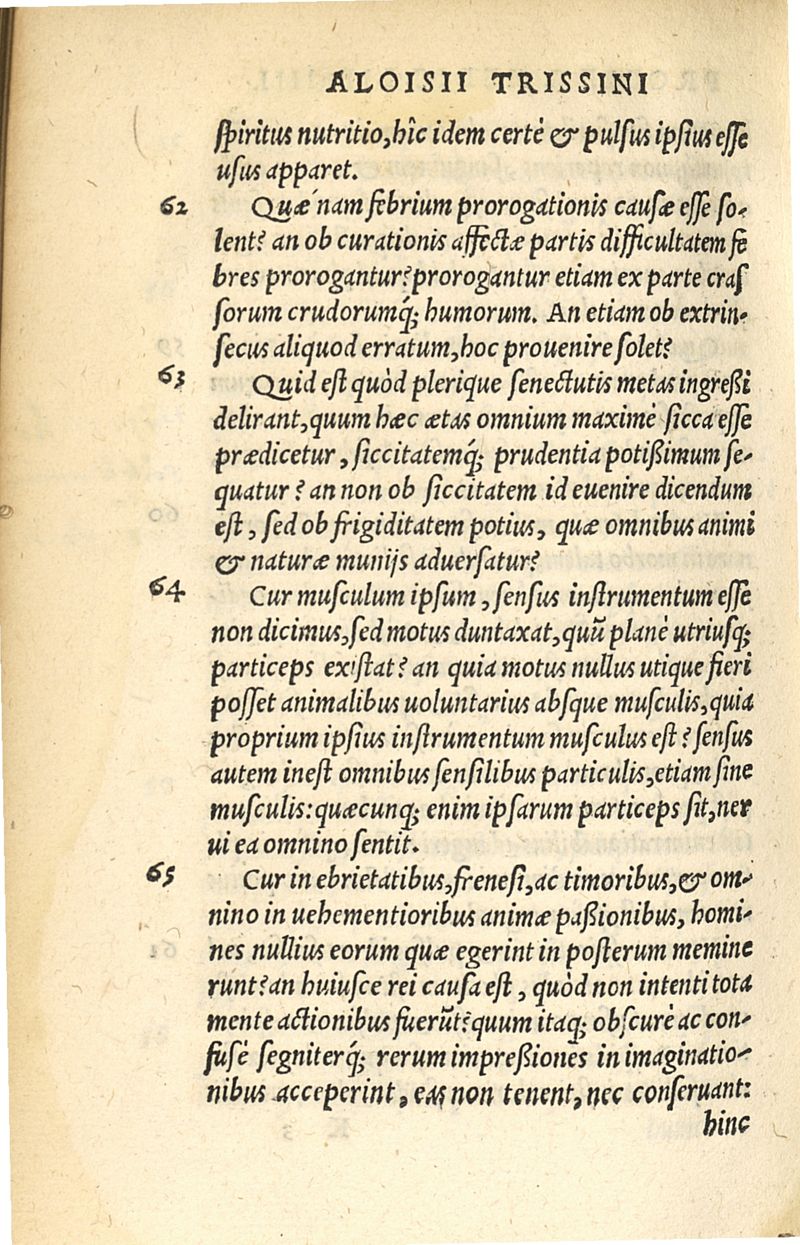 ALOISII TRISSINI
ſpiritus nutritio, hîc idem certè & pulſus ipſius eſſe
uſus apparet.
62 Quæ nam febrium prorogationis cauſæ eſſe ſo-
lent? an ob curationis affectæ partis difficultatem fe
bres prorogantur? prorogantur etiam ex parte craſ
ſorum crudorumq́; humorum. An etiam ob extrin-
ſecus aliquod erratum, hoc prouenire ſolet?
63 Quid eſt quòd plerique ſenectutis metas ingreßi
delirant, quum hæc ætas omnium maximè ſicca eſſe
prædicetur, ſiccitatemq́; prudentia potißimum ſe-
quatur? an non ob ſiccitatem id euenire dicendum
eſt, ſed ob frigiditatem potius, quæ omnibus animi
& naturæ munijs aduerſatur?
64 Cur muſculum ipſum, ſenſus inſtrumentum eſſe
non dicimus, ſed motus duntaxat, quũ planè utriuſq;
particeps exiſtat? an quia motus nullus utique fieri
poſſet animalibus uoluntarius abſque muſculis, quia
proprium ipſius inſtrumentum muſculus eſt? ſenſus
autem ineſt omnibus ſenſilibus particulis, etiam ſine
muſculis: quæcunq; enim ipſarum particeps ſit, ner
ui ea omnino ſentit.
65 Cur in ebrietatibus, freneſi, ac timoribus, & om-
nino in uehementioribus animæ paßionibus, homi-
nes nullius eorum quæ egerint in poſterum memine
runt? an huiuſce rei cauſa eſt, quòd non intenti tota
mente actionibus fuerũt? quum itaq; obſcurè ac con-
fuſè ſegniterq́; rerum impreßiones in imaginatio-
nibus acceperint, eas non tenent, nec conſeruant:
hinc